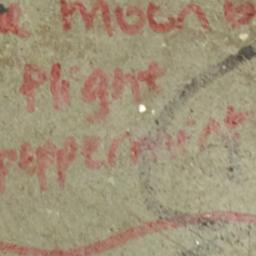 moon
Plight
peppermint